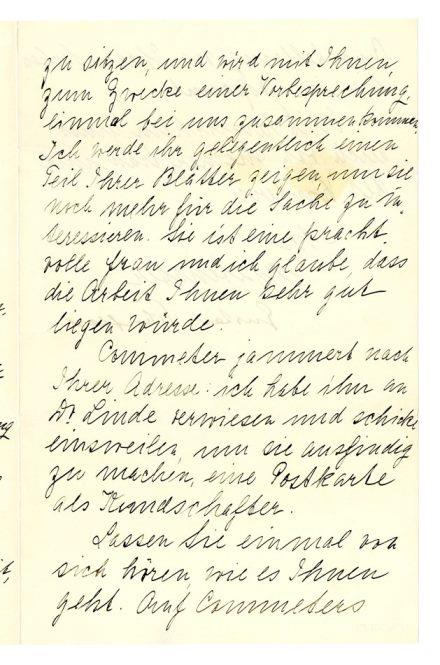 zu sitzen, und wird mit Ihnen,
zum Zwecke einer Vorbesprechung,
einmal bei uns zusammenkommen.
Ich werde ihr gelegentlich einen
Teil Ihrer Blätter zeigen, um sie
noch mehr für die Sache zu in-
teressieren. Sie ist eine pracht
volle Frau und ich glaube, dass
die Arbeit Ihnen sehr gut
liegen würde.
Commeter jammert nach
Ihrer Adresse: ich habe ihn an
Dr Linde verwiesen und schicke
einsweilen, um sie ausfindig
zu machen, eine Postkarte
als Kundschafter.
Lassen Sie einmal von
sich hören, wie es Ihnen
geht. Auf Commeters